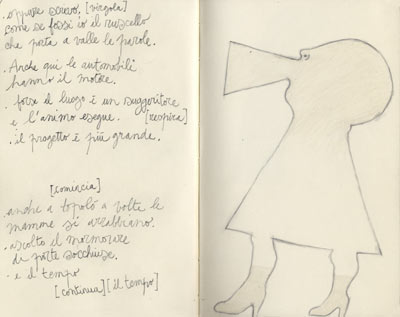 . oppure scrivo, [virgola]
come se fossi io il ruscello
che porta a valle le parole.
. Anche qui le automobili
hanno il motore.
. forse il luogo è un suggeritore
e l'animo esegue. [respira]
. il progetto è più grande.
[comincia]
anche a topolò a volte le
mamme si arrabbiano.
. ascolto il mormorare
di porte socchiuse.
. e il tempo
[continua] [il tempo]